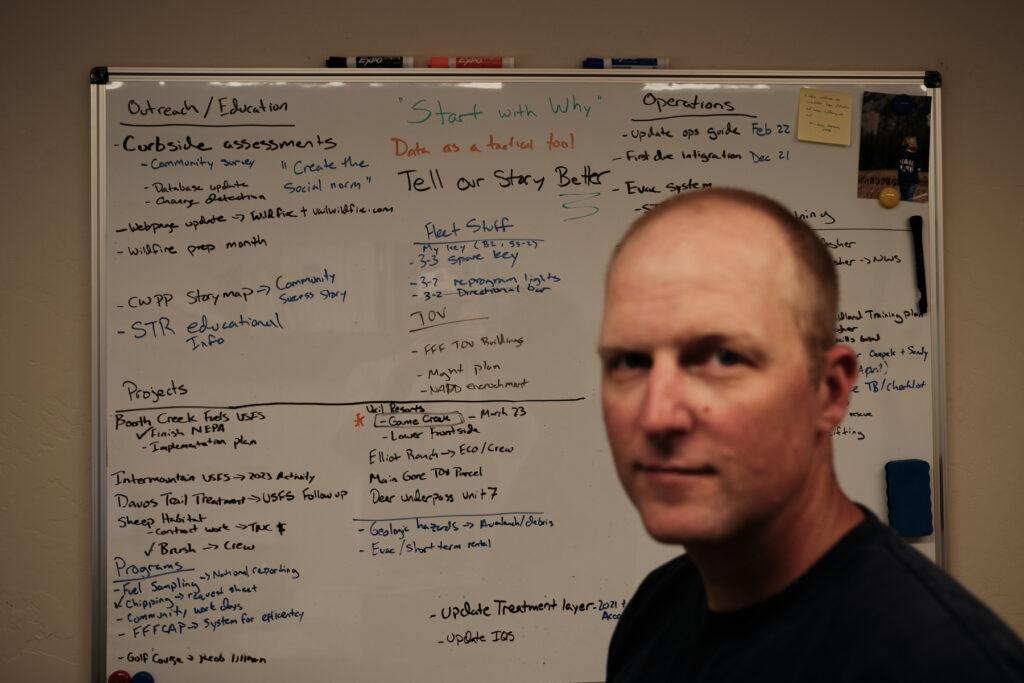 EXPO
EXPO
Outreach / Education
- Curbside assessments
- Community survey
- Database update
- Change detection
"Create the
Social norm"
- Webpage update → Wildfire + vailwildfire.com
- Wildfire prep month
- CWPP Storymap → Community
Success Story
- STR educational
Info
"Start with Why"
Data as a tactical tool
Tell our Story Better
Fleet Stuff
My key
- 3-3 Spare key
- 3-2 reprogram lights
- 3-2 Directional bar
TOV
- FFF TOV Buildings
- Mgmt plan
- NAPD encroachment
Operations
- Update ops guide Feb 22
- First due intigration Dec 21
- Evac system
VAIL
→ NWS
Training plan
TB/Checklist
Projects
Booth Creek Fuels USFS
✓ Finish NEPA
- Implementation plan
Intermountain USFS → 2023 Activity
Davos Trail Treatment → USFS Follow up
Sheep Habitat
- Contract work → TRC $
✓ Brush → Crew
Vail Resorts
* - Game Creek - March 23
- Lower Frontside
Elliot Ranch → ECO/Crew
Main Gore TOV Parcel
Deer underpass unit 7
- Geologic hazards → Avalanch/debris
- Evac/short term rental
Programs
- Fuel Sampling → National reporting
✓ Chipping → request sheet
- Community work days
- FFFCAP → System for efficentcy
- Golf Course → Jacob
- Update Treatment layer - 2021 +
- Update IQS